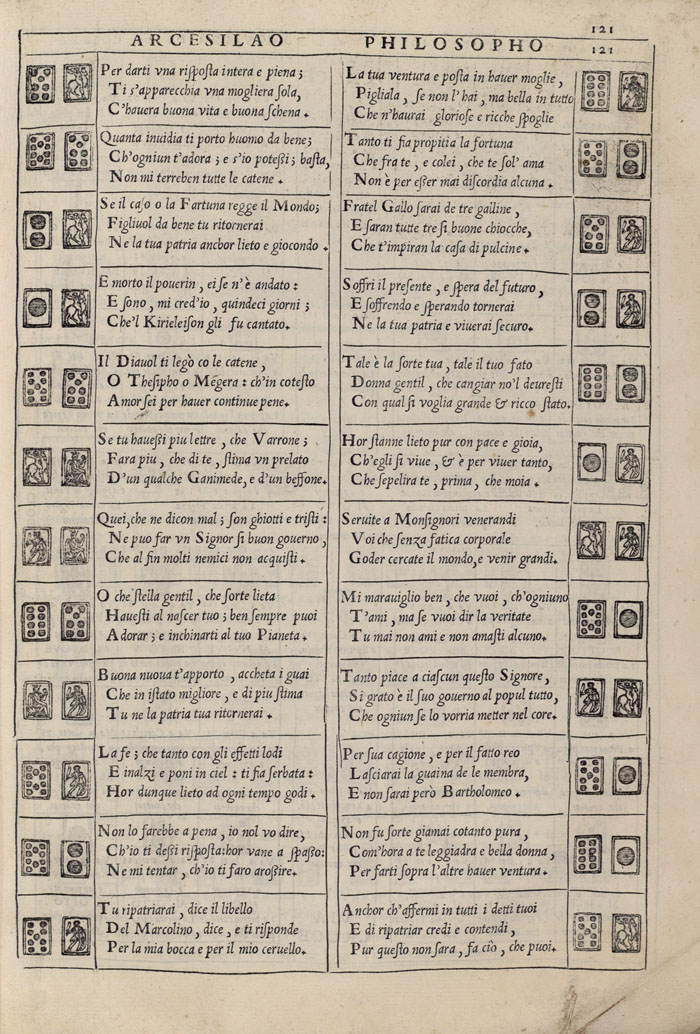 121
ARCESILAO PHILOSOPHO
121
Per darti vna risposta intera e piena;
Ti s'apparecchia vna mogliera sola,
C'hauera buona vita e buona schena.
Quanta inuidia ti porto huomo da bene;
Ch'ogniun t'adora; e s'io potessi; basta,
Non mi terreben tutte le catene.
Se il caso o la Fortuna regge il Mondo;
Figliuol da bene tu ritornerai
Ne la tua patria anchor lieto e giocondo.
E morto il pouerin, ei se n'è andato:
E sono, mi cred'io, quindeci giorni;
Che'l Kirieleison gli fu cantato.
Il Diauol ti legò co le catene,
O Thesipho o Mégera: ch'in cotesto
Amor sei per hauer continue pene.
Se tu hauessi piu lettre, che Varrone;
Fara piu, che di te, stima vn prelato
D'un qualche Ganimede, e d'un beffone.
Quei, che ne dicon mal; son ghiotti e tristi:
Ne puo far vn Signor si buon gouerno,
Che al fin molti nemici non acquisti.
O che stella gentil, che sorte lieta
Hauesti al nascer tuo; ben sempre puoi
Adorar; e inchinarti al tuo Pianeta.
Buona nuoua t'apporto, accheta i guai
Che in istato migliore, e di piu stima
Tu ne la patria tua ritornerai.
La fe; che tanto con gli effetti lodi
E inalzi e poni in ciel: ti fia serbata:
Hor dunque lieto ad ogni tempo godi.
Non lo farebbe a pena, io nol vo dire,
Ch'io ti dessi risposta: hor vane a spasso:
Ne mi tentar, ch'io ti faro arossire.
Tu ripatriarai, dice il libello
Del Marcolino, dice, e ti risponde
Per la mia bocca e per il mio ceruello.
La tua ventura e posta in hauer moglie,
Pigliala, se non l'hai, ma bella in tutto
Che n'haurai gloriose e ricche spoglie
Tanto ti fia propitia la fortuna
Che fra te, e colei, che te sol' ama
Non è per esser mai discordia alcuna.
Fratel Gallo sarai de tre galline,
E saran tutte tre si buone chiocche,
Che t'impiran la casa di pulcine.
Soffri il presente, e spera del futuro,
E soffrendo e sperando tornerai
Ne la tua patria e viuerai securo.
Tale è la sorte tua, tale il tuo fato
Donna gentil, che cangiar no'l deuresti
Con qual si voglia grande & ricco stato.
Hor stanne lieto pur con pace e gioia,
Ch'egli si viue, & è per viuer tanto,
Che sepelira te, prima, che moia.
Seruite a Monsignori venerandi
Voi che senza fatica corporale
Goder cercate il mondo, e venir grandi.
Mi marauiglio ben, che vuoi, ch'ogniuno
T'ami, ma se vuoi dir la veritate
Tu mai non ami e non amasti alcuno.
Tanto piace a ciascun questo Signore,
Si grato è il suo gouerno al popul tutto,
Che ogniun se lo vorria metter nel core.
Per sua cagione, e per il fatto reo
Lasciarai la guaina de le membra,
E non sarai però Bartholomeo.
Non fu sorte giamai cotanto pura,
Com'hora a te leggiadra e bella donna,
Per farti sopra l'altre hauer ventura.
Anchor ch'affermi in tutti i detti tuoi
E di ripatriar credi e contendi,
Pur questo non sara, fa ciò, che puoi.